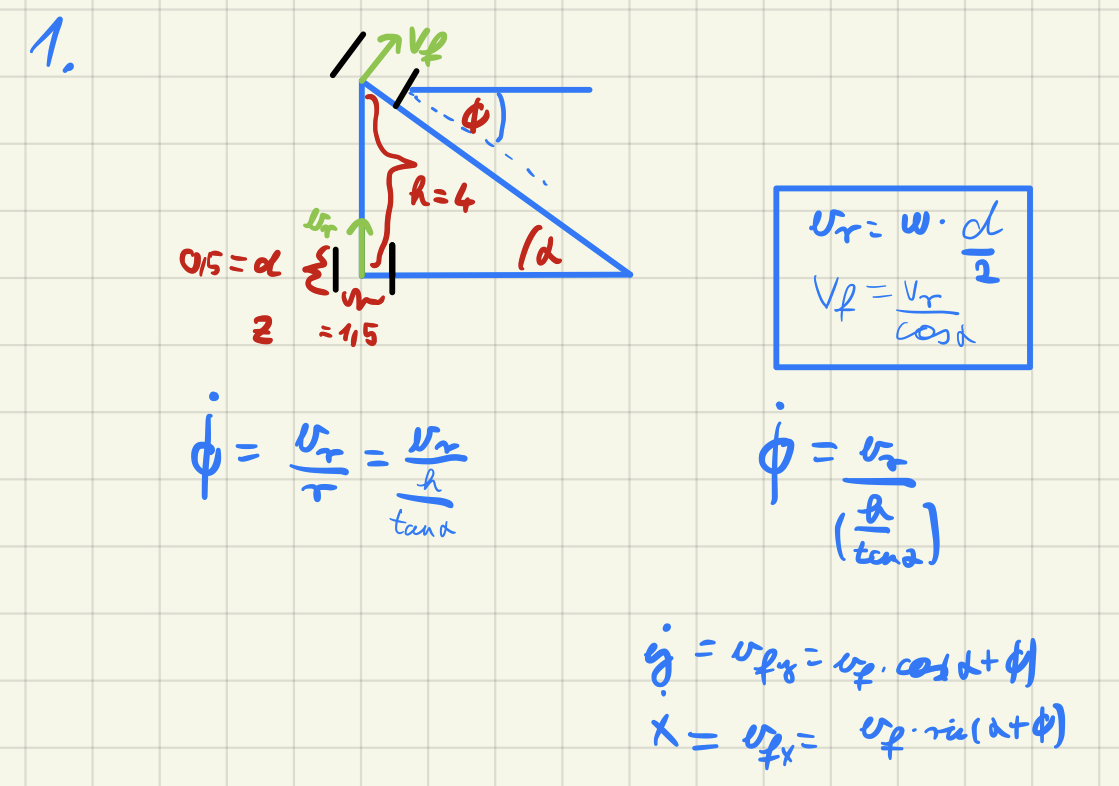 1.
v_f
ϕ
h = 4
v_r
α
0,5 = d
z = 1,5
v_r = w · d/2
V_f = v_r/cos α
ϕ̇ = v_r/r = v_r/(h/tan α)
ϕ̇ = v_r/(h/tan α)
ẏ = v_fy = v_f · cos(α + ϕ)
ẋ = v_fx = v_f · sin(α + ϕ)